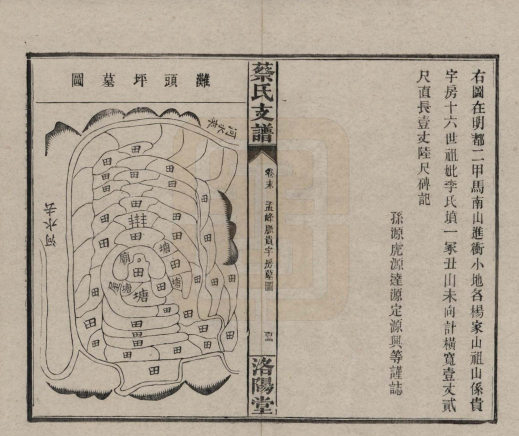 右圖在明都二甲馬南山進衝小地各楊家山祖山係貴
字房十六世祖妣李氏墳一冢丑山未向計橫寬壹丈貳
尺直長壹丈陸尺碑記
孫源虎源達源定源興等謹誌
蔡氏支譜
卷末
洛陽堂
灘頭坪墓圖
河水來
河水去
田
田
田
田
田
田
田
田
田
塘
塘
田
田
田
田
田
田